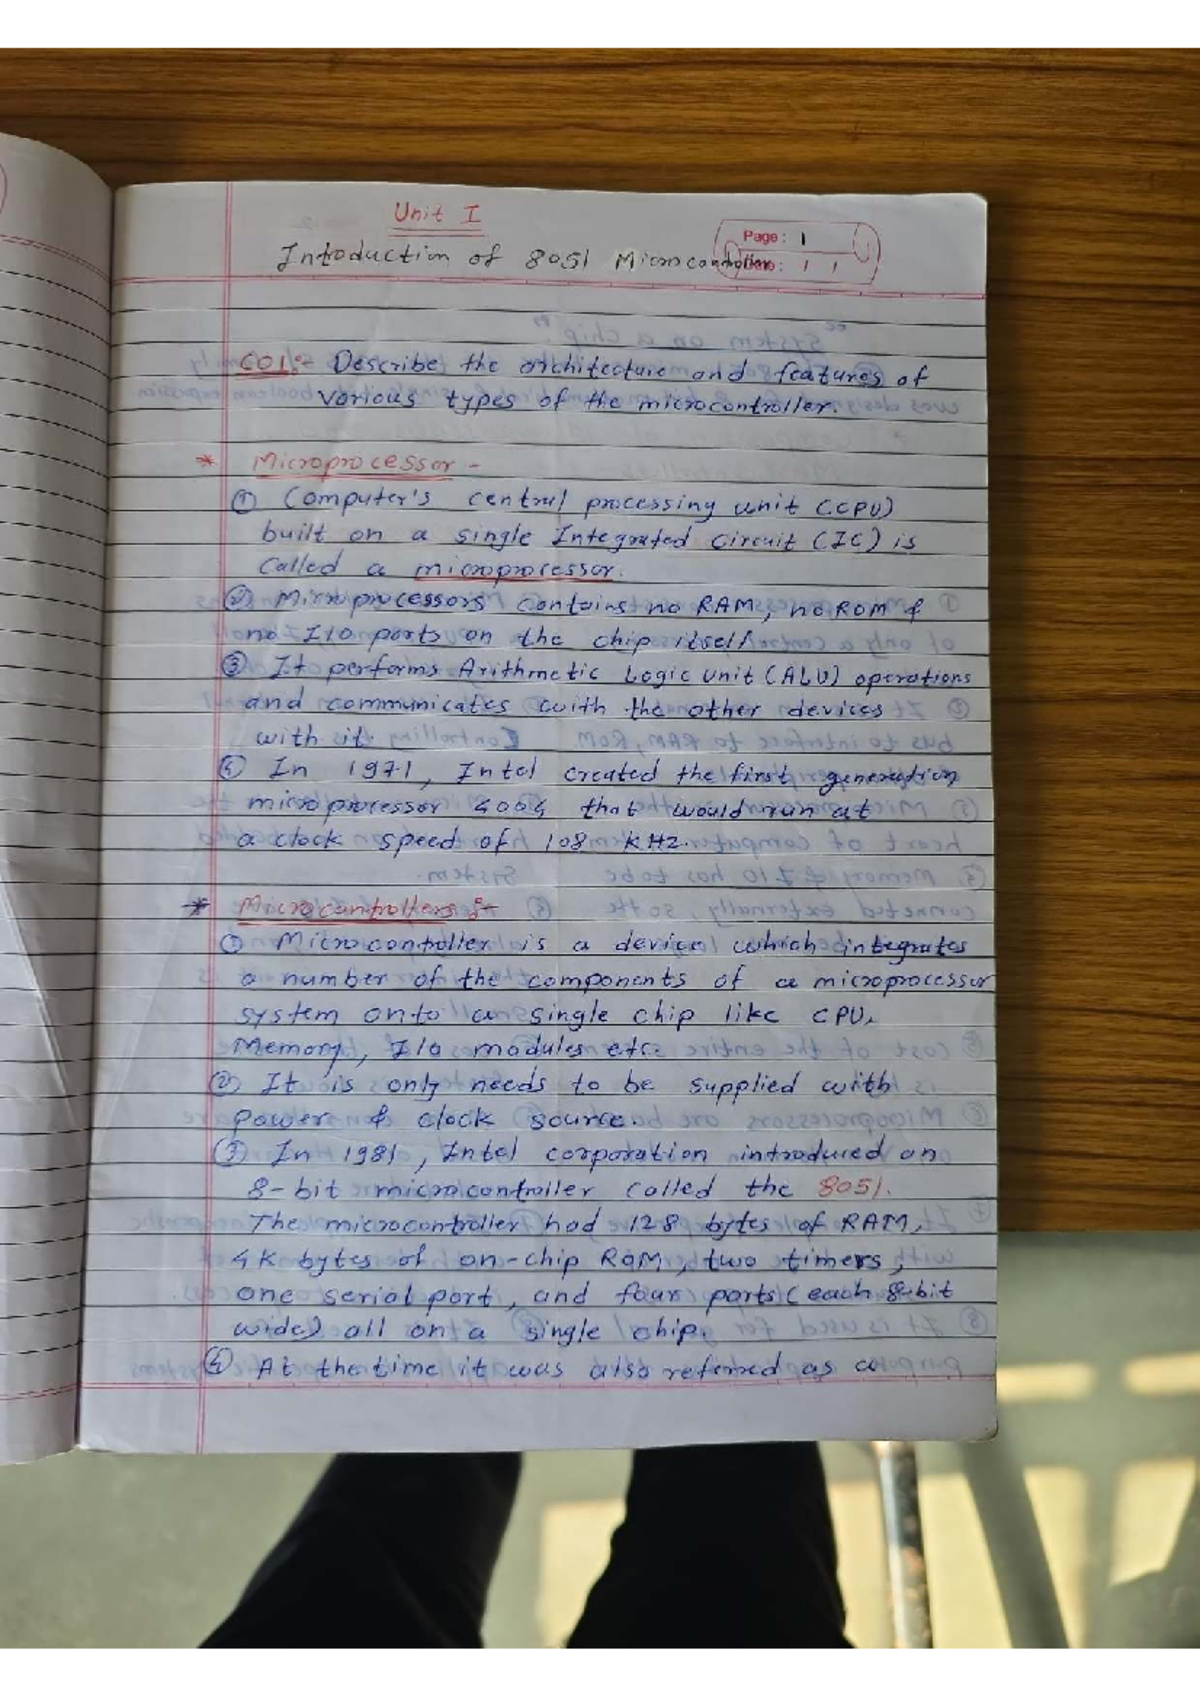 Unit I
Page : 1
Intoduction of 8051 Microcontroller
CO1:- Describe the architecture and features of
various types of the microcontroller.
* Microprocessor -
① Computer's central processing unit (CPU)
built on a single Integrated Circuit (IC) is
called a microprocessor.
② Microprocessors contains no RAM, no ROM &
no I/O ports on the chip itself.
③ It performs Arithmetic Logic unit (ALU) operations
and communicates with the other devices
with it.
④ In 1971, Intel created the first generation
microprocessor 4004 that would run at
a clock speed of 108 KHz.
* Microcontrollers :-
① Microcontroller is a device which integrates
a number of the components of a microprocessor
system onto a single chip like CPU,
Memory, I/O modules etc.
② It is only needs to be supplied with
power & clock source.
③ In 1981, Intel corporation introduced an
8-bit microcontroller called the 8051.
The microcontroller had 128 bytes of RAM,
4K bytes of on-chip ROM, two timers,
one serial port, and four ports (each 8-bit
wide) all on a single chip.
④ At the time it was also referred as a